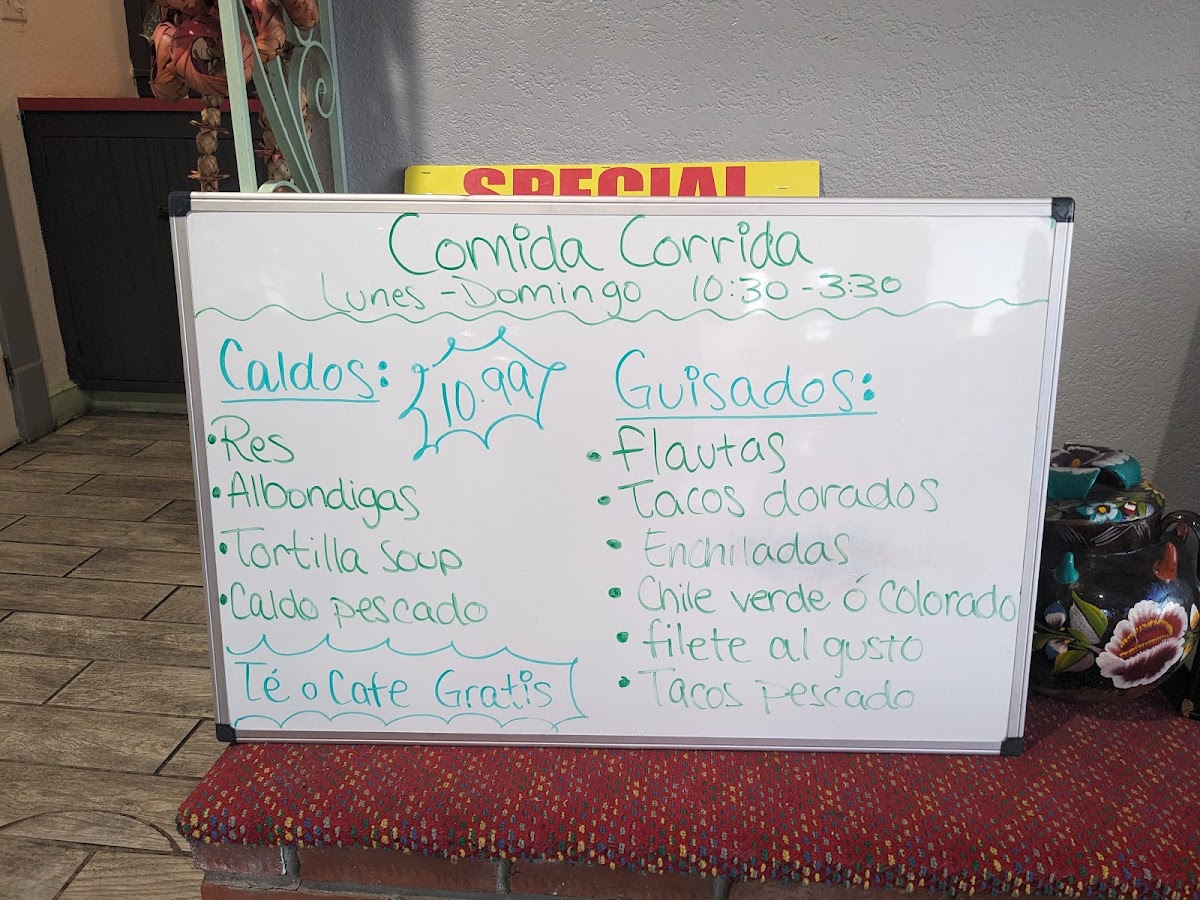 SPECIAL
Comida Corrida
Lunes - Domingo 10:30 - 3:30
Caldos:
10.99
• Res
• Albondigas
• Tortilla soup
• Caldo pescado
Té o Cafe Gratis
Guisados:
• flautas
• Tacos dorados
• Enchiladas
• Chile verde ó Colorado
• filete al gusto
• Tacos pescado